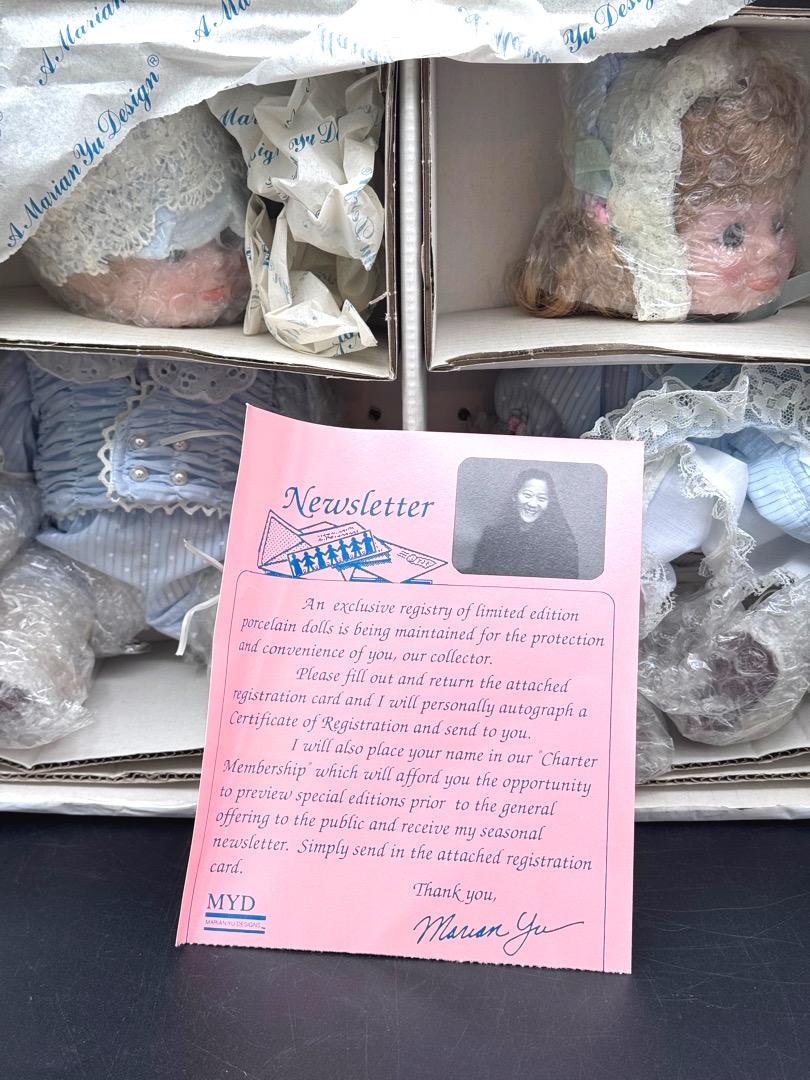 A Marian
A Ma
Marian
Yu Design
A Marian Yu Design®
Newsletter
An exclusive registry of limited edition
porcelain dolls is being maintained for the protection
and convenience of you, our collector.
Please fill out and return the attached
registration card and I will personally autograph a
Certificate of Registration and send to you.
I will also place your name in our "Charter
Membership" which will afford you the opportunity
to preview special editions prior to the general
offering to the public and receive my seasonal
newsletter. Simply send in the attached registration
card.
Thank you,
Marian Yu
MYD
MARIAN YU DESIGNS